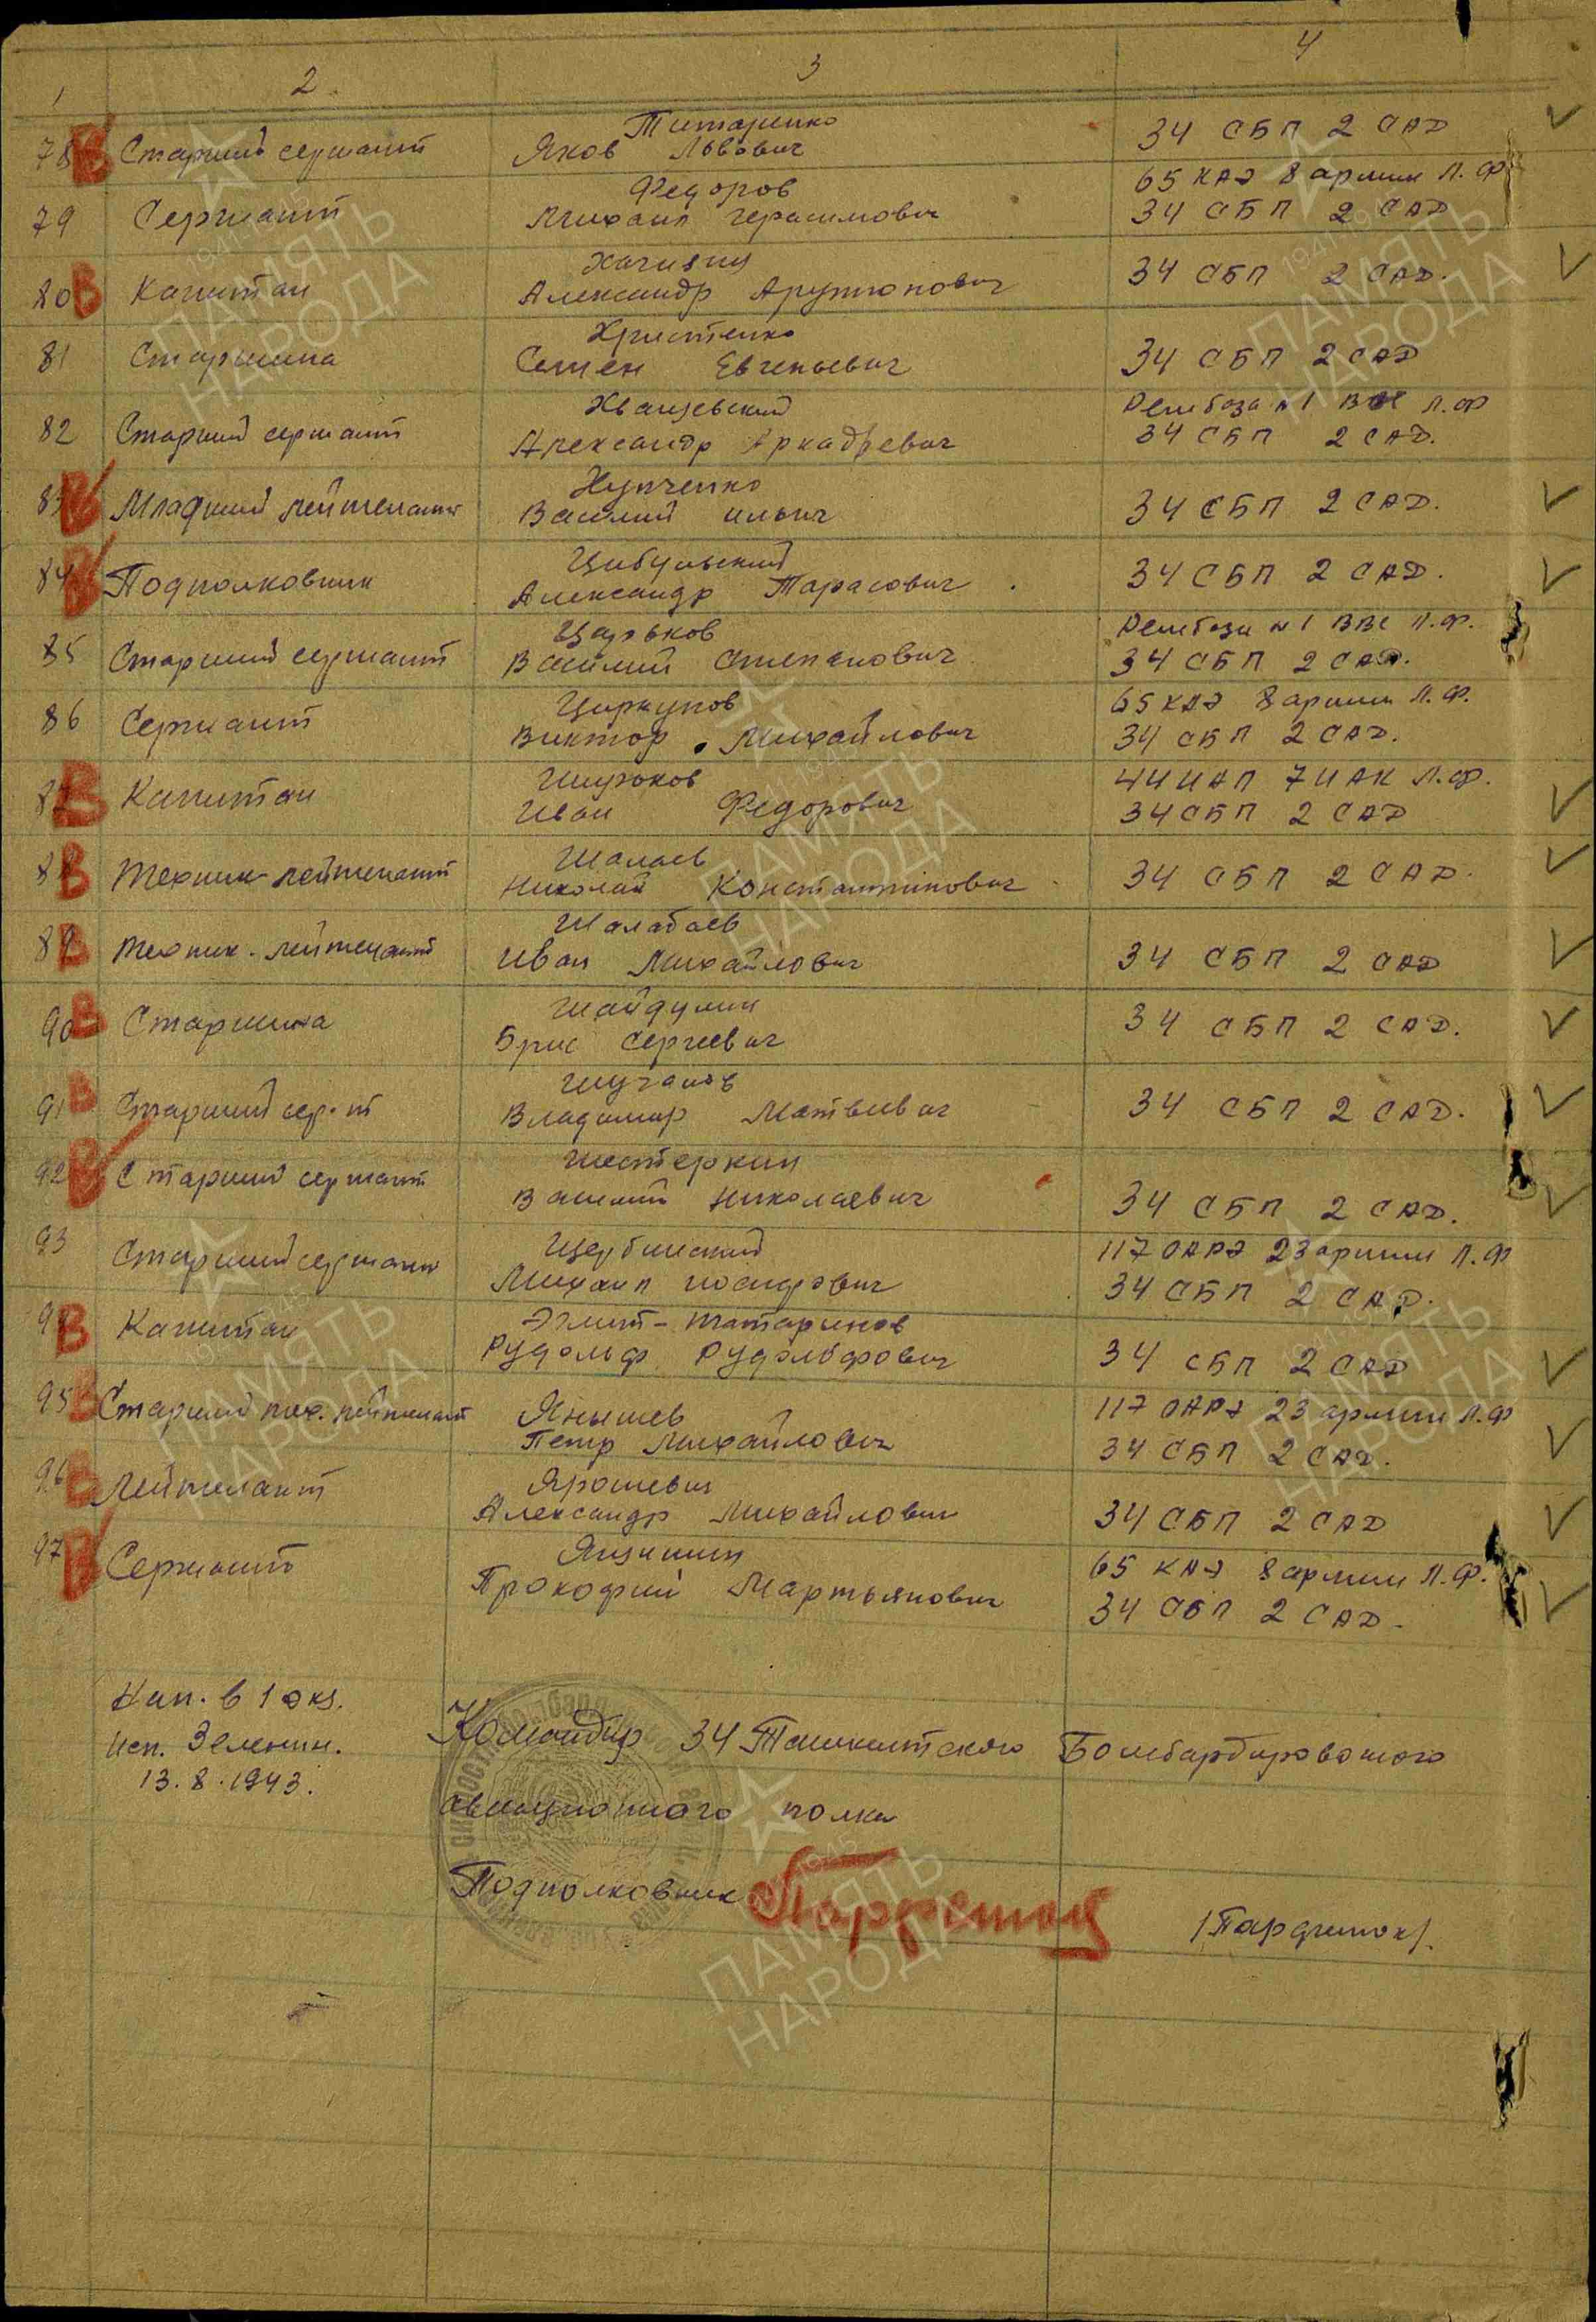 1 2 3 4
78 В Старший сержант Титаренко Яков Львович 34 СБП 2 САД
65 КАЭ 8 армии Л.Ф.
79 Сержант Федоров Михаил Герасимович 34 СБП 2 САД
80 В Капитан Александр Арутюнович 34 СБП 2 САД.
81 Старшина Христенко Семен Евгеньевич 34 СБП 2 САД
Рембаза №1 ВВС Л.Ф
82 Старший сержант Хващевский Александр Аркадьевич 34 СБП 2 САД.
83 В Младший лейтенант Василий Ильич 34 СБП 2 САД.
84 В Подполковник Цибульский Александр Тарасович 34 СБП 2 САД.
Рембаза №1 ВВС Л.Ф.
85 Старший сержант Царьков Василий Степанович 34 СБП 2 САД.
65 КАЭ 8 армии Л.Ф.
86 Сержант Циркунов Виктор Михайлович 34 СБП 2 САД.
44 ИАП 7 ИАК Л.Ф.
87 В Капитан Иван Федорович 34 СБП 2 САД
88 В Техник-лейтенант Шалаев Николай Константинович 34 СБП 2 САД.
89 В Техник-лейтенант Шалабаев Иван Михайлович 34 СБП 2 САД
90 В Старшина Брис Сергеевич 34 СБП 2 САД.
91 В Старший сер-т Владимир Матвеевич 34 СБП 2 САД.
92 В Старший сержант Шестеркин Василий Николаевич 34 СБП 2 САД.
117 ОАРЭ 23 армии Л.Ф
93 Старший сержант Щербинский Михаил Иосифович 34 СБП 2 САД.
94 В Капитан Эглит-Татаринов Рудольф Рудольфович 34 СБП 2 САД
117 ОАРЭ 23 армии Л.Ф
95 В Старший тех. лейтенант Янышев Петр Михайлович 34 СБП 2 САД.
96 В Лейтенант Ярошевич Александр Михайлович 34 СБП 2 САД
65 КАЭ 8 армии Л.Ф.
97 В Сержант Прокофий Мартьянович 34 СБП 2 САД.
Нап. в 1 экз.
Исп. Зеленин.
13.8.1943.
Командир 34 Ташкентского Бомбардировочного
авиационного полка
Подполковник
ПАМЯТЬ
НАРОДА
1941-1945